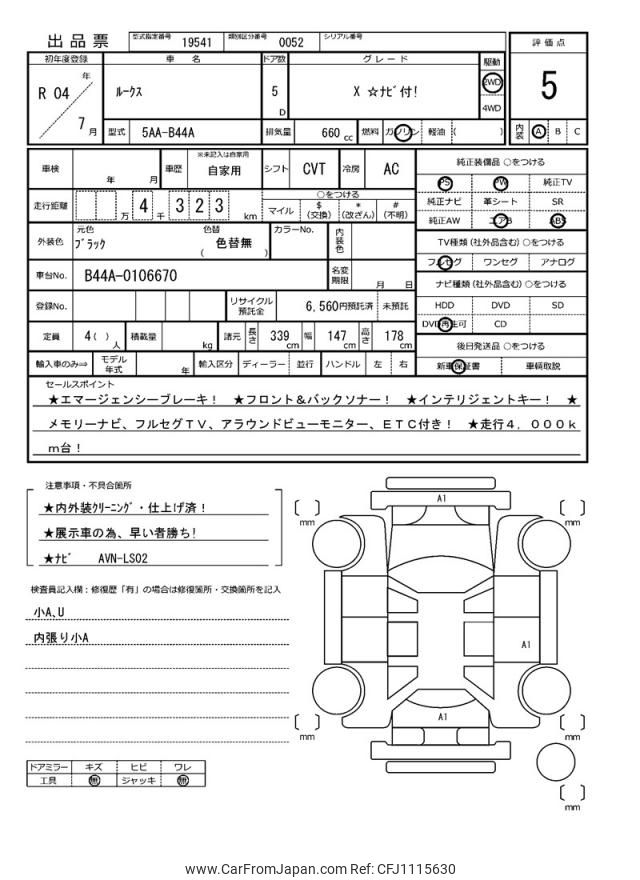 出品票 型式指定番号 19541 類別区分番号 0052 シリアル番号
初年度登録 車名 ドア数 グレード 駆動 評価点
R 04 年 7 月 ルークス 5 D X ☆ナビ付! 2WD 4WD 5
型式 5AA-B44A 排気量 660 cc 燃料 ガソリン 軽油 ( ) 内装 A B C
車検 年 月 車歴 ※未記入は自家用 自家用 シフト CVT 冷房 AC
走行距離 万 4 千 3 2 3 km ○をつける マイル $ (交換) * (改ざん) # (不明)
外装色 元色 ブラック 色替 ( 色替無 ) カラーNo. 内装色
車台No. B44A-0106670 名変期限 月 日
登録No. リサイクル預託金 6,560円預託済 未預託
定員 4 ( ) 人 積載量 kg 諸元 長さ 339 cm 幅 147 cm 高さ 178 cm
輸入車のみ⇒ モデル年式 年 輸入区分 ディーラー 並行 ハンドル 左 右
純正装備品 ○をつける
PS PW 純正TV
純正ナビ 革シート SR
純正AW エアB ABS
TV種類 (社外品含む) ○をつける
フルセグ ワンセグ アナログ
ナビ種類 (社外品含む) ○をつける
HDD DVD SD
DVD再生可 CD
後日発送品 ○をつける
新車保証書 車輌取説
セールスポイント
★エマージェンシーブレーキ! ★フロント&バックソナー! ★インテリジェントキー! ★
メモリーナビ、フルセグTV、アラウンドビューモニター、ETC付き! ★走行4,000k
m台!
注意事項・不具合箇所
★内外装クリーニング・仕上げ済!
★展示車の為、早い者勝ち!
★ナビ AVN-LS02
検査員記入欄:修復歴「有」の場合は修復箇所・交換箇所を記入
小A,U
内張り小A
ドアミラー キズ ヒビ ワレ
工具 無 ジャッキ 無
A1
[ ] mm [ ] mm
A1
A1
[ ] mm [ ] mm
[ ] mm
www.CarFromJapan.com Ref: CFJ1115630